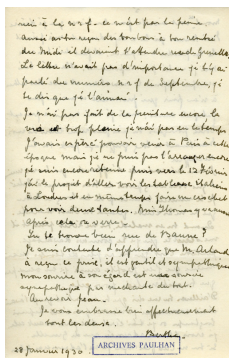 ici à la n r f - ce n'est pas la peine
aussi avoir reçu des bonbons à son rentré
du Midi il devait s'attendre
La lettre n'avait pas d'importance je t'y ai
parlé du numéro n r f de Septembre, je
te dis que je l'aimais
Je n'ai pas fait de la peinture encore la
vie est trop pleine je n'ai pas eu le temps
J'avais espéré pouvoir venir à Paris à cette
époque mais je ne puis pas l'arranger encore
je suis encore retenue jusque vers le 12 Février
j'ai le projet d'aller voir les tableaux italiens
à Londres et en même temps faire un crochet
pour voir deux tantes. Ami Thomas y
après cela on verra
Tu te trouves bien que de
Je suis contente d'apprendre que M. Arland
a reçu ce prix, il est gentil et sympathique
mon sourire à son égard est un sourire
sympathique pas méchant du tout.
Au revoir Jean.
Je vous embrasse bien affectueusement
tout les deux.
Berthe
28 Janvier 1930.
ARCHIVES PAULHAN